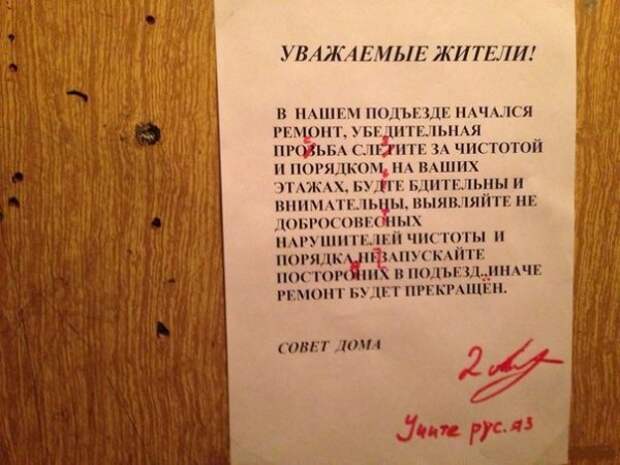 УВАЖАЕМЫЕ ЖИТЕЛИ!
В НАШЕМ ПОДЪЕЗДЕ НАЧАЛСЯ
РЕМОНТ, УБЕДИТЕЛЬНАЯ
ПРОЗЬБА СЛЕТИТЕ ЗА ЧИСТОТОЙ
И ПОРЯДКОМ, НА ВАШИХ
ЭТАЖАХ, БУДТЕ БДИТЕЛЬНЫ И
ВНИМАТЕЛЬНЫ, ВЫЯВЛЯЙТЕ НЕ
ДОБРОСОВЕСНЫХ
НАРУШИТЕЛЕЙ ЧИСТОТЫ И
ПОРЯДКА,НЕЗАПУСКАЙТЕ
ПОСТОРОНИХ В ПОДЪЕЗД.,ИНАЧЕ
РЕМОНТ БУДЕТ ПРЕКРАЩЁН.
СОВЕТ ДОМА
2
Учите рус.яз